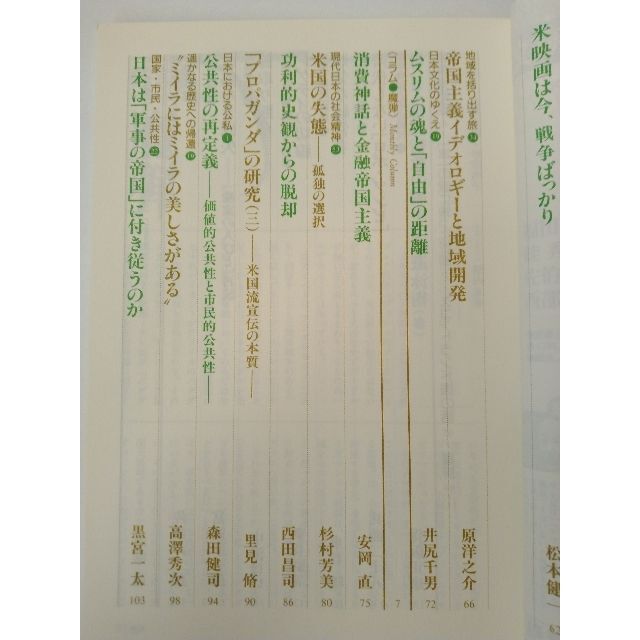 米映画は今、戦争ばっかり
松本健一
62
地域を括り出す旅 34
帝国主義イデオロギーと地域開発
原洋之介
66
日本文化のゆくえ 19
ムスリムの魂と「自由」の距離
井尻千男
72
〈コラム●魔弾〉 Monthly Column
7
消費神話と金融帝国主義
安岡 直
75
現代日本の社会精神 23
米国の失態――孤独の選択
杉村芳美
80
功利的史観からの脱却
西田昌司
86
「プロパガンダ」の研究(三)――米国流宣伝の本質――
里見 脩
90
日本における公私 1
公共性の再定義――価値的公共性と市民的公共性――
森田健司
94
遥かなる歴史への帰還 19
〝ミイラにはミイラの美しさがある〟
高澤秀次
98
国家・市民・公共性 22
日本は「軍事の帝国」に付き従うのか
黒宮一太
103